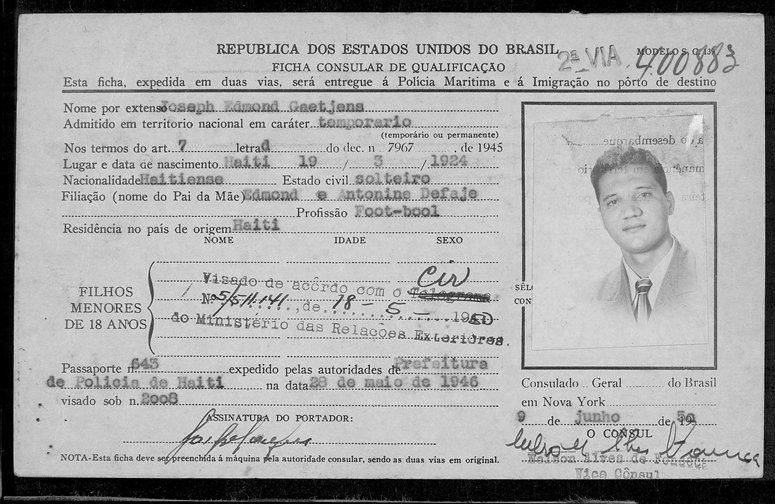 REPUBLICA DOS ESTADOS UNIDOS DO BRASIL
2ª VIA.
MODELO S. C. 139
400883
FICHA CONSULAR DE QUALIFICAÇÃO
Esta ficha, expedida em duas vias, será entregue á Polícia Maritima e á Imigração no pôrto de destino
Nome por extenso Joseph Edmond Gaetjens
Admitido em territorio nacional em caráter temporario
(temporário ou permanente)
Nos termos do art. 7 letra d do dec. n 7967, de 1945
Lugar e data de nascimento Haiti 19 / 3 / 1924
Nacionalidade Haitiense Estado civil solteiro
Filiação (nome do Pai da Mãe) Edmond e Antonine Defaje
Profissão Foot-bool
Residência no país de origem Haiti
NOME IDADE SEXO
FILHOS MENORES DE 18 ANOS
Visado de acôrdo com o Telegrama Cir
Nº 5/511.141, de 18 - 5 - 1950
do Ministério das Relações Exteriores.
Passaporte nº 643 expedido pelas autoridades de Prefeitura
de Policia de Haiti na data 28 de maio de 1946
visado sob n. 2008
ASSINATURA DO PORTADOR:
NOTA-Esta ficha deve ser preenchida á máquina pela autoridade consular, sendo as duas vias em original.
Consulado Geral do Brasil
em Nova York
9 de junho de 1950
O CONSUL
Nelson Alves da Fonseca
Vice Cônsul